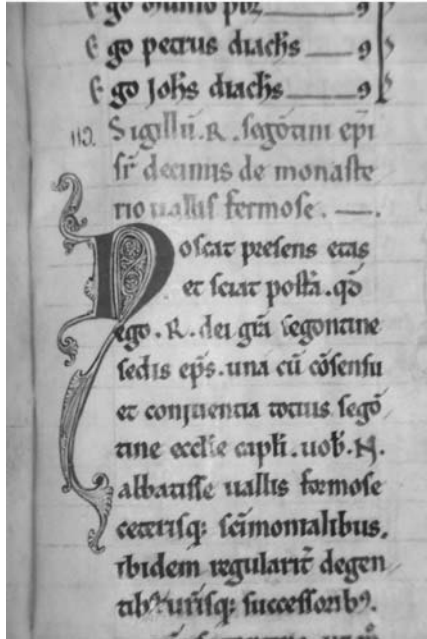 Ego petrus diachs ____ 9
Ego Johs diachs ____ 9
112. Sigillũ. R. segõtini epi
sr̃ decimis de monaste
rio uallis fermose. —.
Noscat presens etas
et sciat postã. qđ
ego. R. dei grã segontine
sedis ep̃s. una cũ cõsensu
et conniuentia totius segõ
tine ecclie capli. uob̃. N.
abbatisse uallis formose
ceterisq; sc̃imonialibus,
ibidem regularit̃ degen
tib⁹ ur̃isq; successorib⁹.